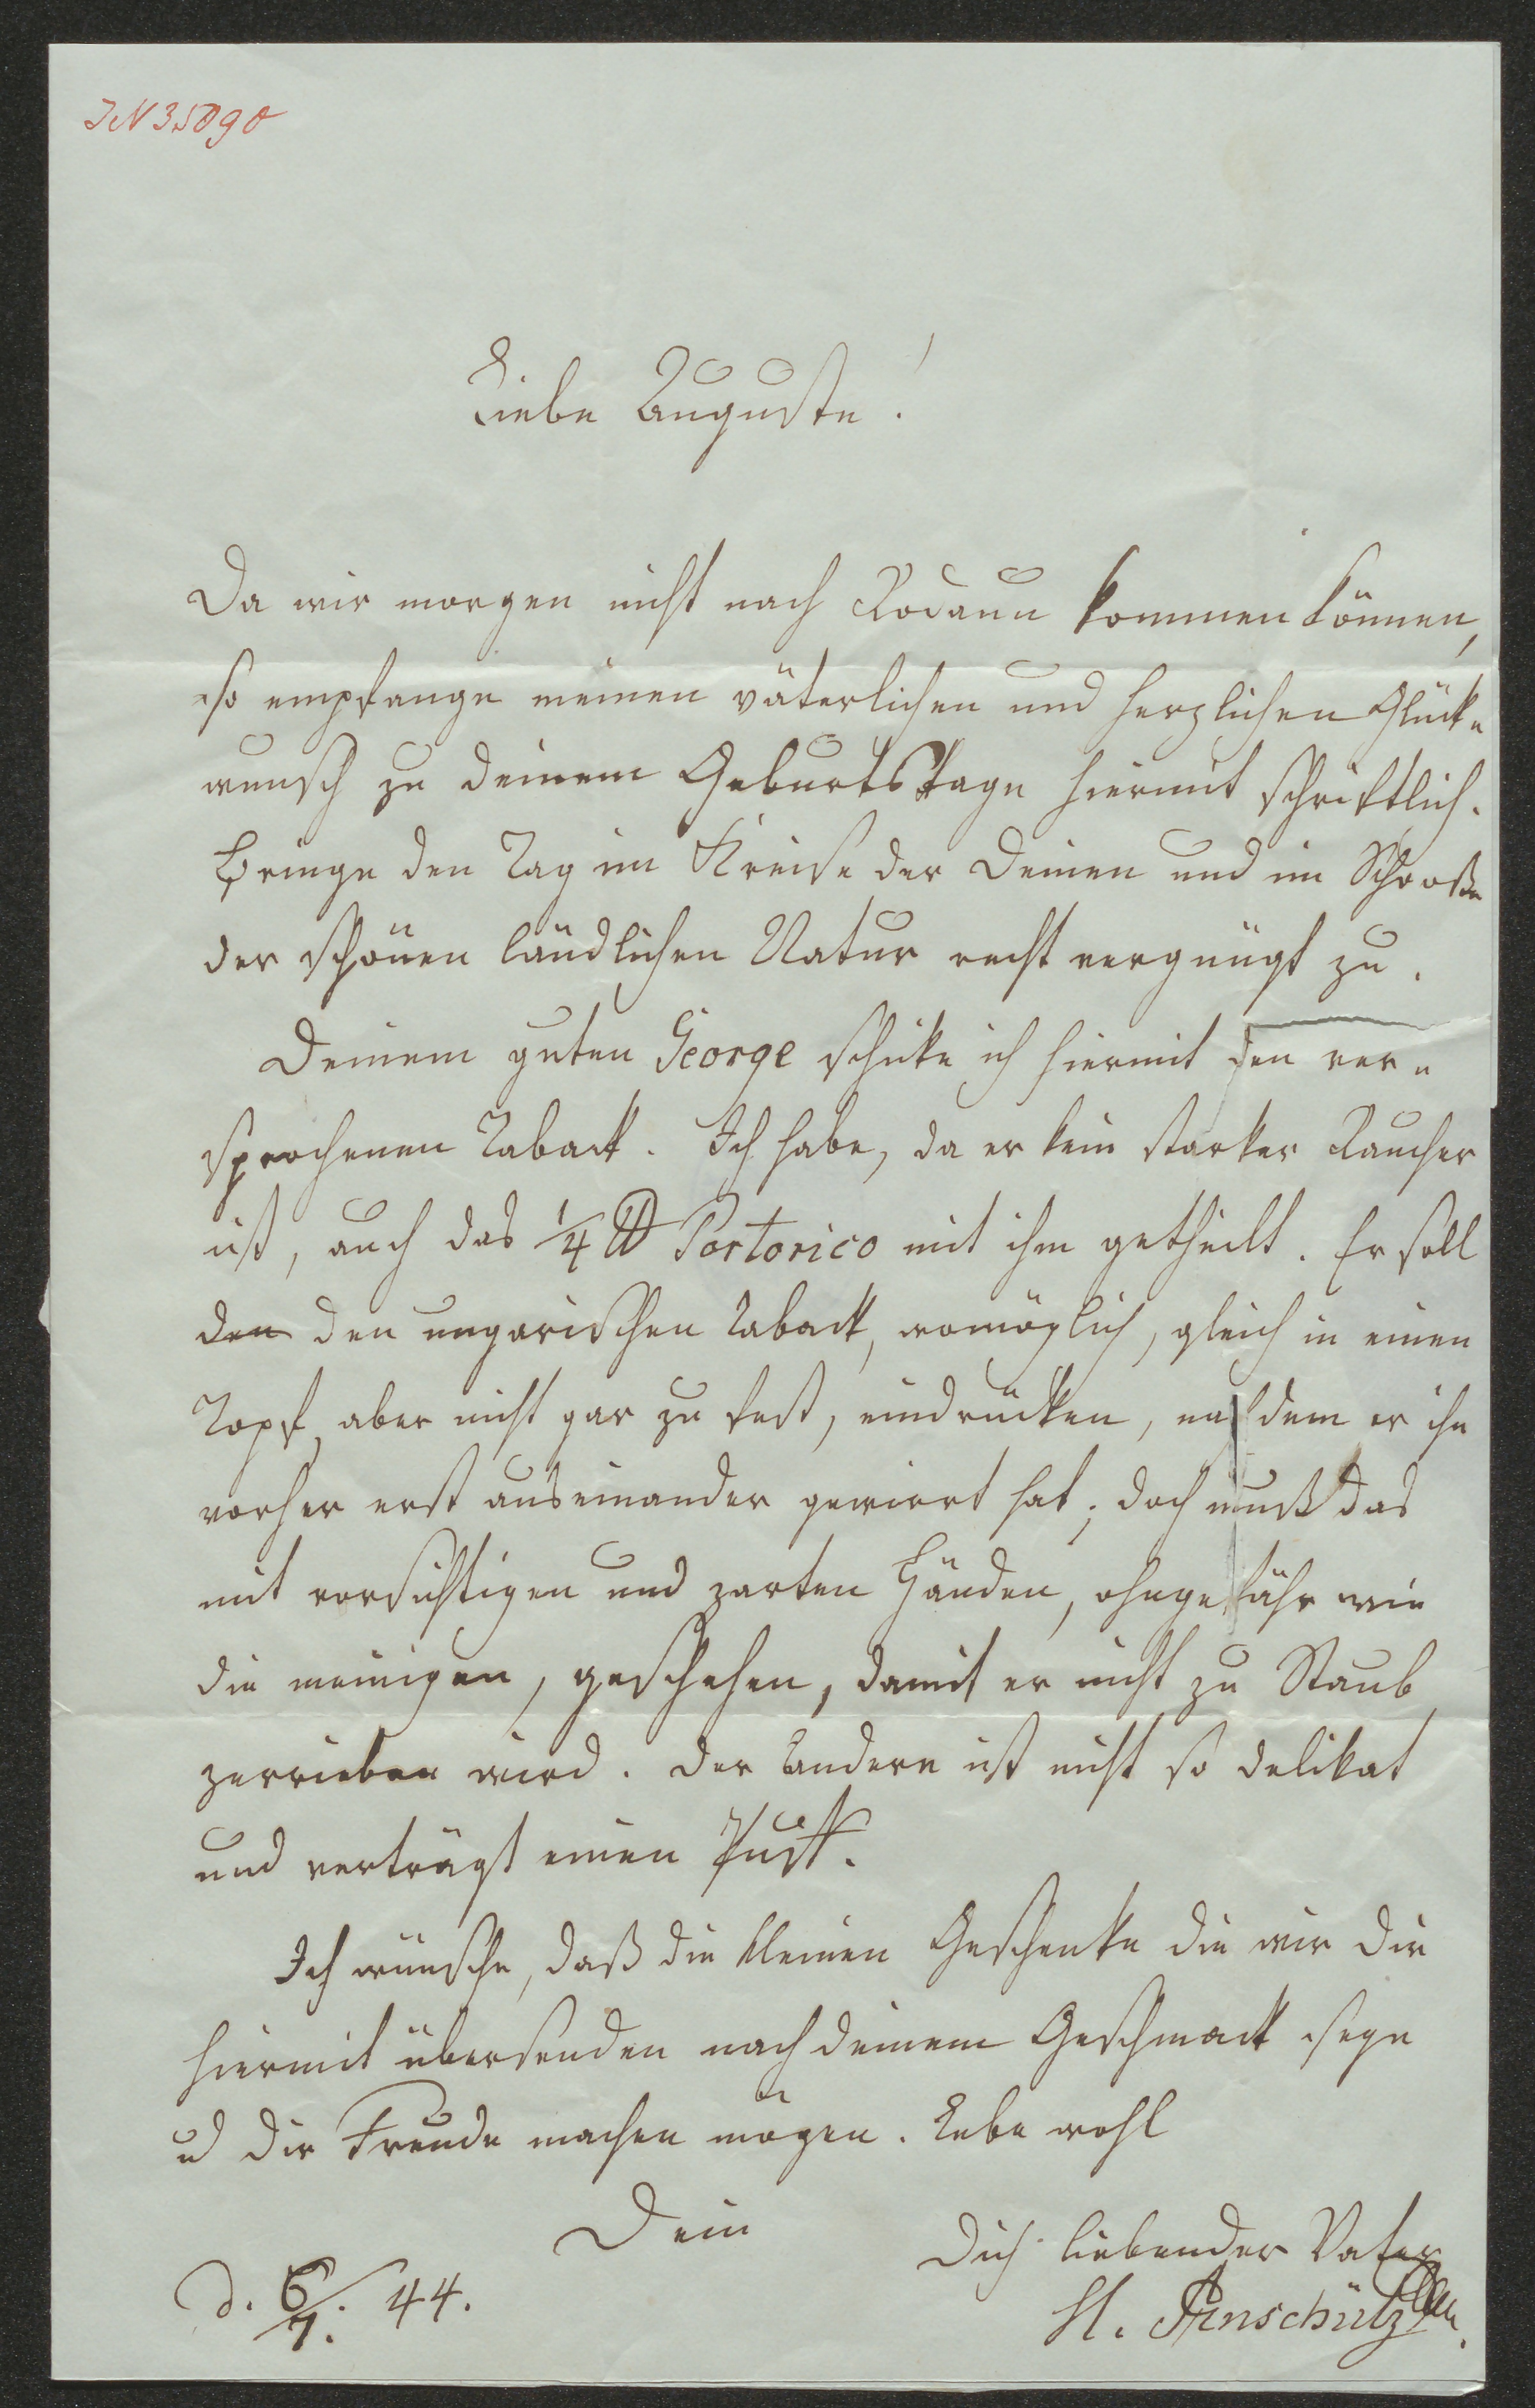 IN 35090
Liebe Auguste!
Da wir morgen nicht nach Rodaun kommen können,
so empfange meinen väterlichen und herzlichen Glück-
wunsch zu deinem Geburtstage hiermit schriftlich.
Bringe den Tag im Kreise der Deinen und im Schooße
der schönen ländlichen Natur recht vergnügt zu.
Deinem guten George schicke ich hiermit den ver-
sprochenen Taback. Ich habe, da er kein starker Raucher
ist, auch das ¼ ℔ Portorico mit ihm getheilt. Er soll
den den ungarischen Taback, womöglich, gleich in einen
Topf, aber nicht gar zu fest, eindrücken, nachdem er ihn
vorher erst auseinander gewirrt hat; doch muß das
mit vorsichtigen und zarten Händen, ohngefähr wie
die meinigen, geschehen, damit er nicht zu Staub
zerrieben wird. Der Andere ist nicht so delikat
und verträgt einen Puff.
Ich wünsche, daß die kleinen Geschenke die wir Dir
hiermit übersenden nach deinem Geschmack seyn
ud dir Freude machen mögen. Lebe wohl
Dein
Dich liebender Vater
d. 6/7. 44.
H. Anschütz